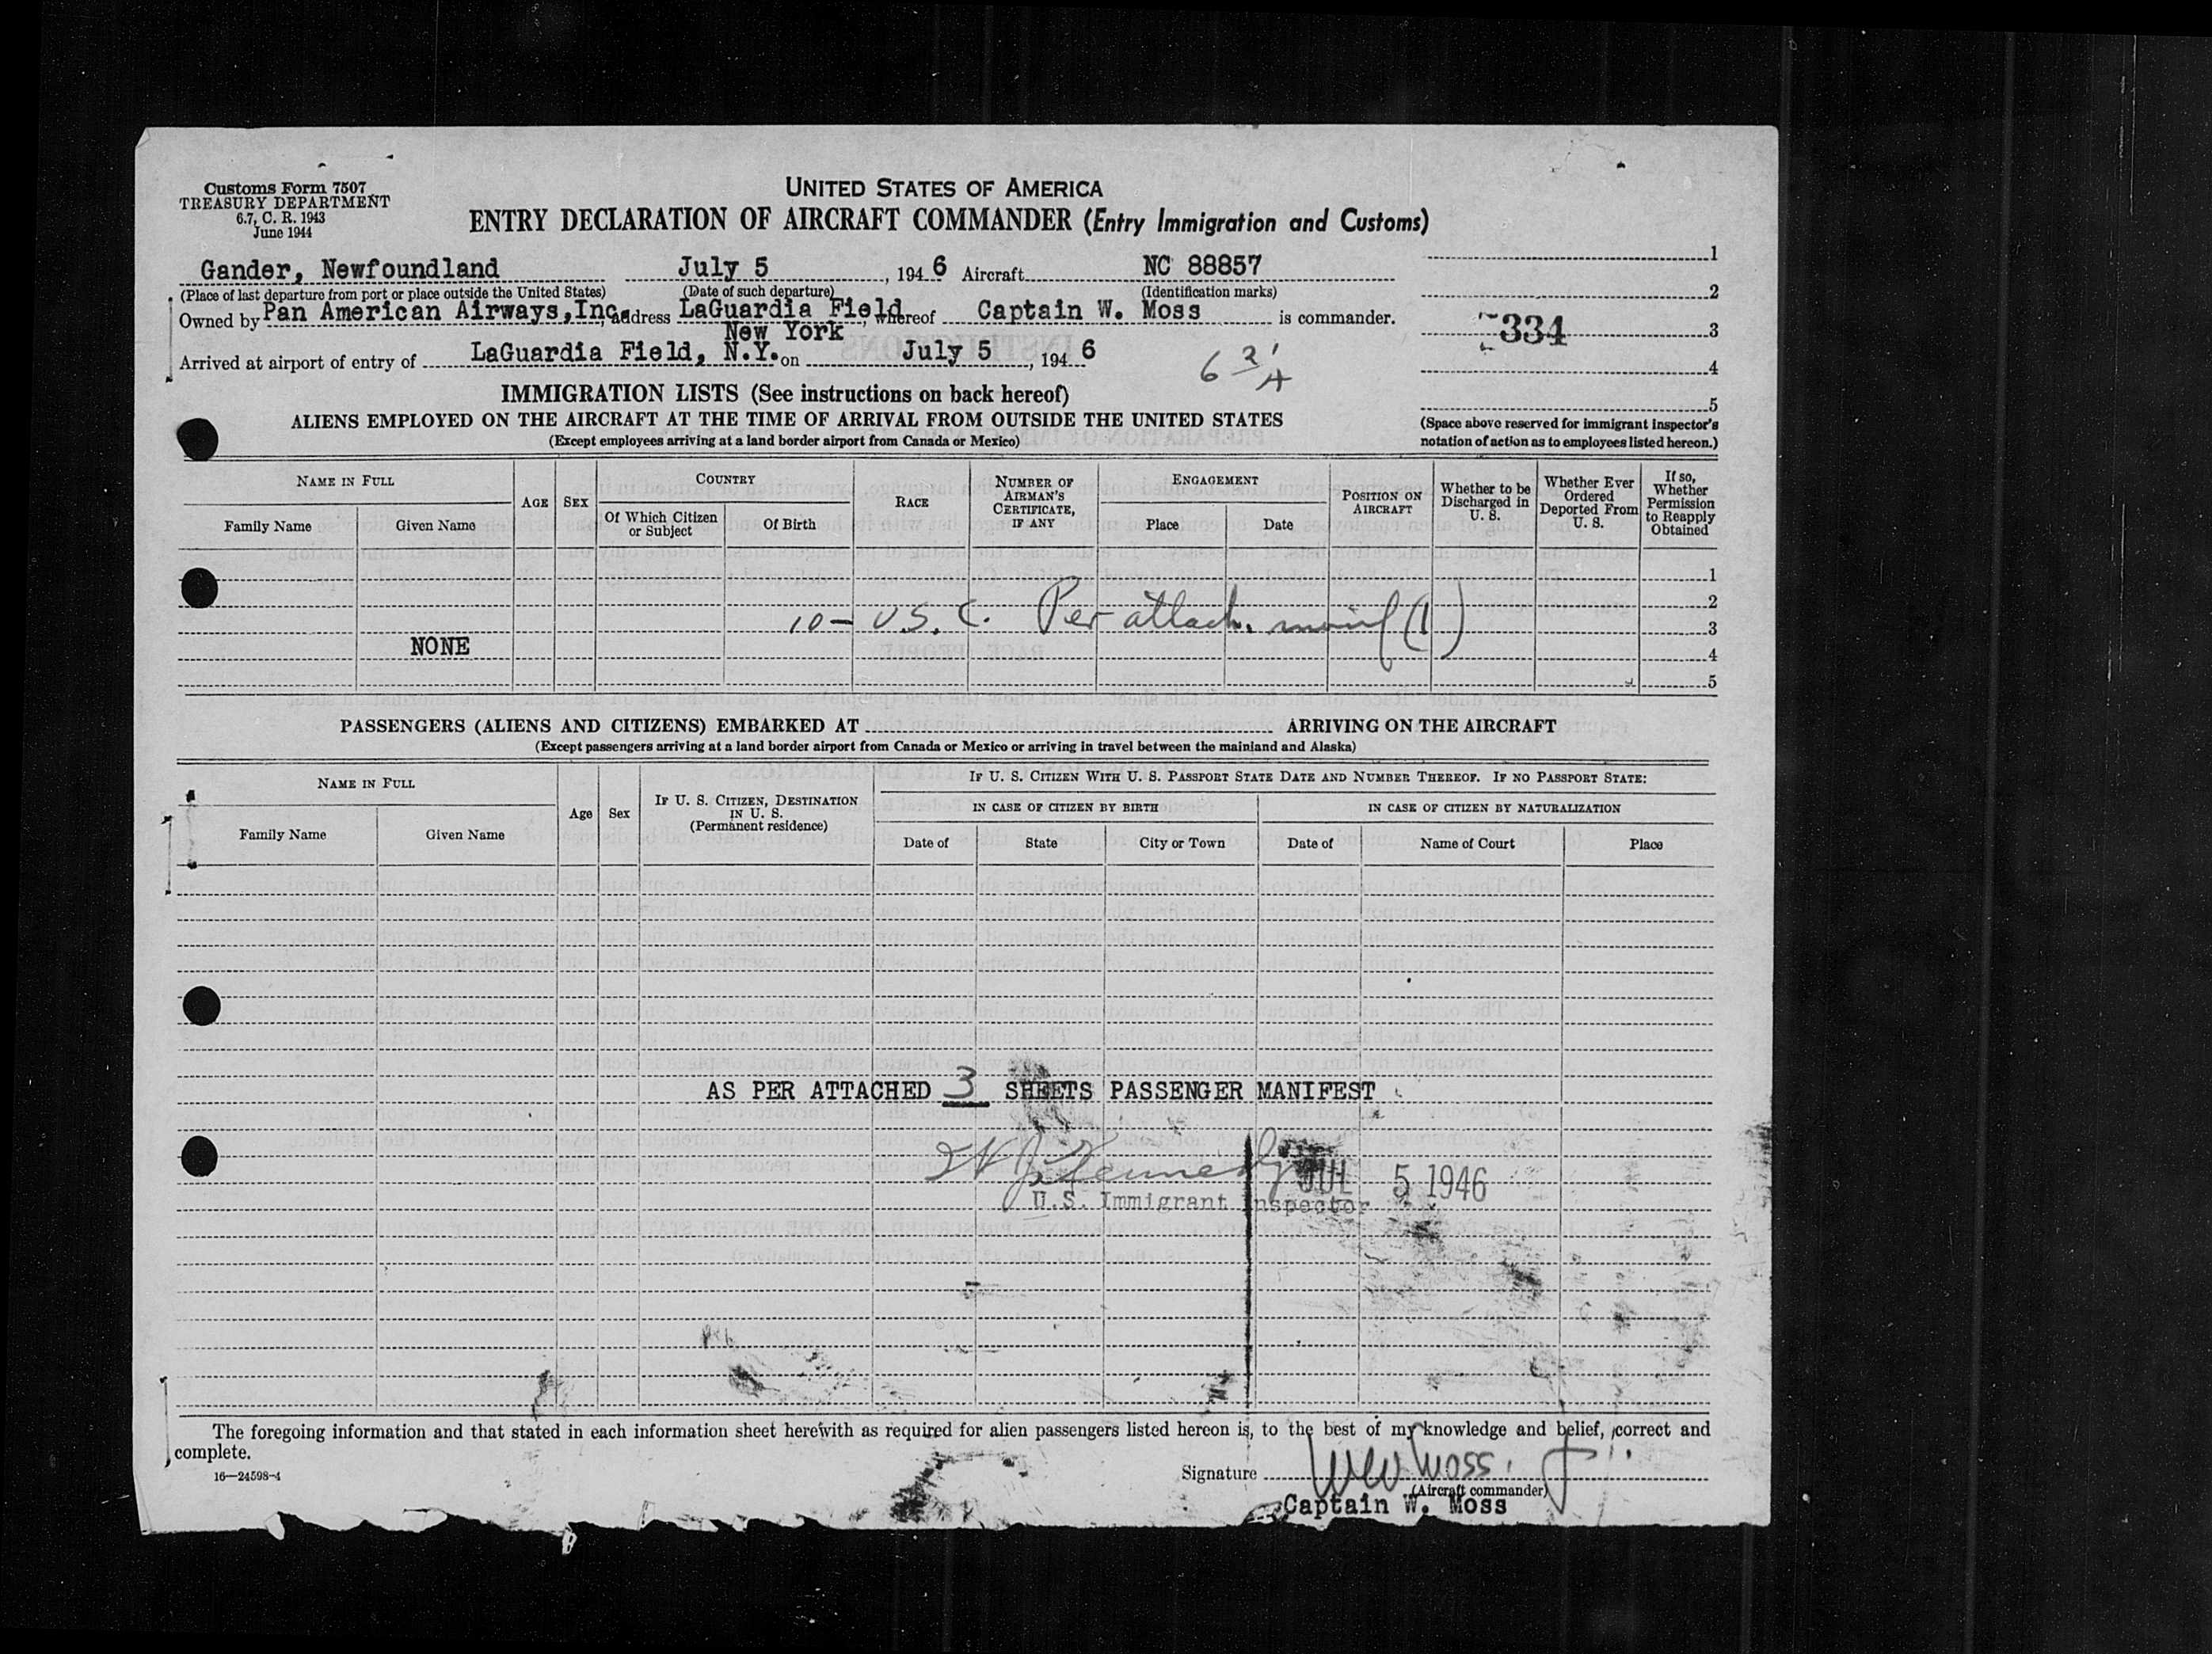 Customs Form 7507
TREASURY DEPARTMENT
6.7, C. R. 1943
June 1944
UNITED STATES OF AMERICA
ENTRY DECLARATION OF AIRCRAFT COMMANDER (Entry Immigration and Customs)
Gander, Newfoundland July 5, 1946 Aircraft NC 88857
(Place of last departure from port or place outside the United States) (Date of such departure) (Identification marks)
Owned by Pan American Airways, Inc., address LaGuardia Field, whereof Captain W. Moss is commander.
New York
Arrived at airport of entry of LaGuardia Field, N.Y. on July 5, 1946
1
2
334 3
4
5
(Space above reserved for immigrant inspector's
notation of action as to employees listed hereon.)
6 3/4
IMMIGRATION LISTS (See instructions on back hereof)
ALIENS EMPLOYED ON THE AIRCRAFT AT THE TIME OF ARRIVAL FROM OUTSIDE THE UNITED STATES
(Except employees arriving at a land border airport from Canada or Mexico)
NAME IN FULL
Family Name
Given Name
AGE
SEX
COUNTRY
Of Which Citizen
or Subject
Of Birth
RACE
NUMBER OF
AIRMAN'S
CERTIFICATE,
IF ANY
ENGAGEMENT
Place
Date
POSITION ON
AIRCRAFT
Whether to be
Discharged in
U. S.
Whether Ever
Ordered
Deported From
U. S.
If so,
Whether
Permission
to Reapply
Obtained
1
2
10 - U.S.C. Per attach. manif (1)
3
NONE
4
5
PASSENGERS (ALIENS AND CITIZENS) EMBARKED AT ARRIVING ON THE AIRCRAFT
(Except passengers arriving at a land border airport from Canada or Mexico or arriving in travel between the mainland and Alaska)
NAME IN FULL
Family Name
Given Name
Age
Sex
IF U. S. CITIZEN, DESTINATION
IN U. S.
(Permanent residence)
IF U. S. CITIZEN WITH U. S. PASSPORT STATE DATE AND NUMBER THEREOF. IF NO PASSPORT STATE:
IN CASE OF CITIZEN BY BIRTH
Date of
State
City or Town
IN CASE OF CITIZEN BY NATURALIZATION
Date of
Name of Court
Place
AS PER ATTACHED 3 SHEETS PASSENGER MANIFEST
Kennedy
JUL 5 1946
U.S. Immigrant Inspector
The foregoing information and that stated in each information sheet herewith as required for alien passengers listed hereon is, to the best of my knowledge and belief, correct and
complete.
16—24598-4
Signature W Moss
(Aircraft commander)
Captain W. Moss